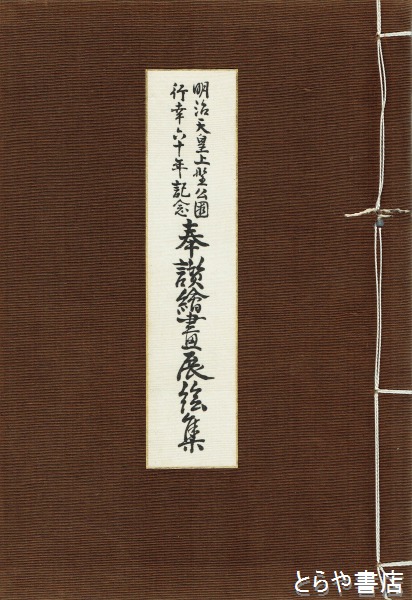 明治天皇上埜公園
行幸六十年記念
奉讃繪畫展絵集
とらや書店